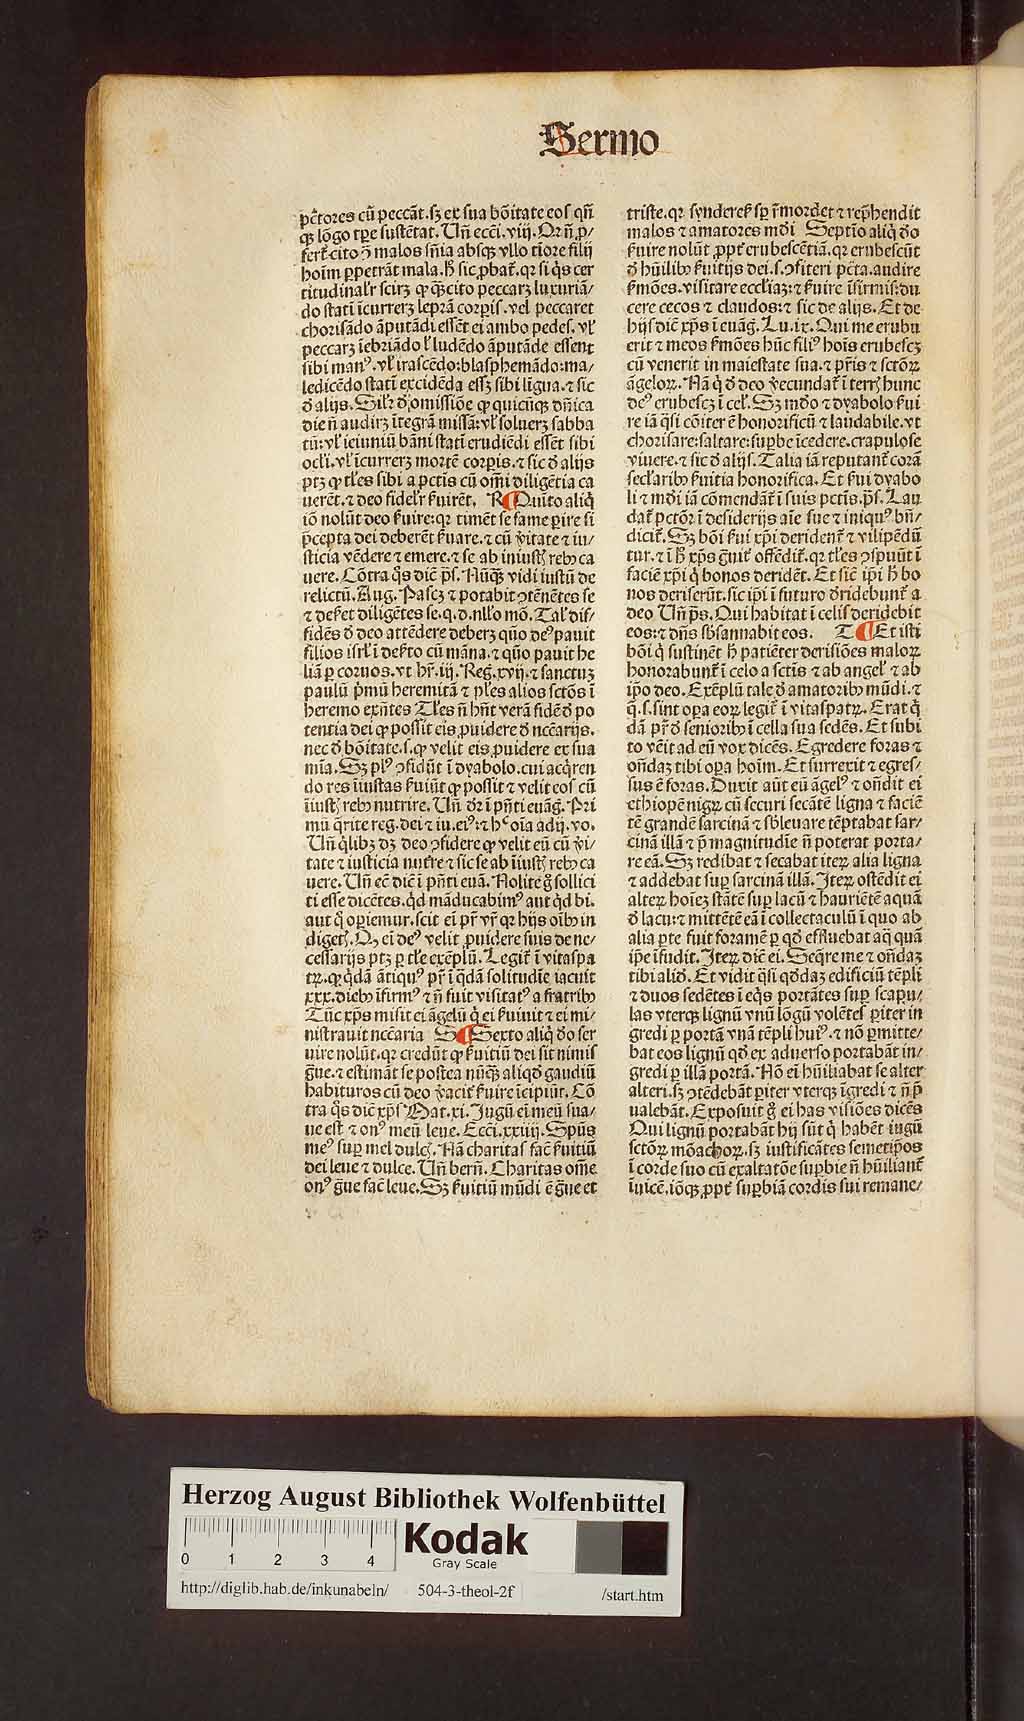 Sermo
pctōres cū peccāt. sꝫ ex sua bōitate eos qñ
qꝫ lōgo tꝑe sustētat. Uñ ecci. viij. Qꝛ ñ ꝓ/
fert̃ cito ꝯ̃ malos sñia absqꝫ vllo tiore filij
hoim ꝑpetrāt mala. h̄ sic ꝓbat̃. qꝛ si q̇s cer
titudinalr̃ scirꝫ ꝙ q̇sꝫcito peccarꝫ luxuriā/
do statī īcurrerꝫ leprā corꝑis. vel peccaret
chorisādo āputādi essēt ei ambo pedes. vl̃
peccarꝫ īebriādo vl̃ ludēdo āputāde essent
sibi manꝰ. vl̃ irascēdo: blasphemādo: ma/
ledicēdo statī excidēda essꝫ sibi ligua. ⁊ sic
ð alijs. Silr̃ ð omissiōe ꝙ quicūqꝫ dñica
die ñ audirꝫ ītegrā missā: vl̃ soluerꝫ sabba
tū: vl̃ ieiuniū bāni statī erudiēdi essēt sibi
ocli. vl̃ īcurrerꝫ mortē corꝑis. ⁊ sic ð alijs
ptꝫ ꝙ tl̃es sibi a pctis cū om̄i diligētia ca
uerēt. ⁊ deo fidelr̃ ẜuirēt. R ¶ Quīto aliq̇
iō nolūt deo ẜuire: qꝛ timēt se fame ꝑire si
p̄cepta dei deberēt ẜuare. ⁊ cū ṽitate ⁊ iu/
sticia vēdere ⁊ emere. ⁊ se ab iniustꝭ rebꝰ ca
uere. Cōtra q̇s dic̄ ps̄. Nūqꝫ vidi iustū de
relictū. Aug. Pascꝫ ⁊ potabit ꝯtēnētes se
⁊ deẜet diligētes se. q. d. nll̃o mō. Tal̃ dif/
fidēs ð deo attēdere deberꝫ quō deꝰ pauit
filios isrl̃ ī deẜto cū māna. ⁊ quō pauit he
liā ꝑ coruos. vt hr̃. iij. Reg. xvij. ⁊ sanctuꝫ
paulū p̄mū heremitā ⁊ pl̃es alios sctōs ī
heremo exñtes Tl̃es ñ hñt verā fidē ð po
tentia dei ꝙ possit eis ꝓuidere ð nccārijs.
nec ð bōitate. s. ꝙ velit eis ꝓuidere ex sua
mīa. Sꝫ plꝰ ꝯfidūt ī dyabolo. cui acq̇ren
do res iniustas ẜuiūt ꝙ possit ⁊ velit eos cū
īiustꝭ rebꝰ nutrire. Uñ dr̃ ī pñti euāg. Pri
mū q̄rite reg. dei ⁊ iu. eiꝰ: ⁊ hͨ oīa adij. vo.
Uñ q̇libꝫ dꝫ deo ꝯfidere ꝙ velit eū cū ṽi/
tate ⁊ iusticia nut̃re ⁊ sic se ab īiustꝭ rebꝰ ca
uere. Uñ ec̄ dic̄ ī pñti euā. Nolite g̊ sollici
ti esse dicētes. qd̄ māducabimꝰ aut qd̄ bi.
aut q̊ oꝑiemur. scit ei pr̃ vr̃ qꝛ hijs oībꝰ in
digetꝭ. Q ei deꝰ velit ꝓuidere suis de ne/
cessarijs ptꝫ ꝑ tl̃e exēplū. Legit̃ ī vitaspa
tꝝ. ꝙ q̇dā ātiqꝰ pr̃ ī q̇dā solitudīe iacuit
xxx. diebꝰ īfirmꝰ ⁊ ñ fuit visitatꝰ a fratribꝰ
Tūc xp̄s misit ei āgelū q̇ ei ẜuiuit ⁊ ei mi/
nistrauit nccāria S ¶ Sexto aliq̇ ðo ser
uire nolūt. qꝛ credūt ꝙ ẜuitiū dei sit nimis
g̃ue. ⁊ estimāt se postea nūqꝫ aliqd̄ gaudiū
habituros cū deo ṽacit̃ ẜuire īceipiūt. Cō
tra q̇s dic̄ xp̄s Mat. xi. Jugū ei meū sua/
ue est ⁊ onꝰ meū leue. Ecci. xxiiij. Spūs
meꝰ suꝑ mel dulcꝭ. Nā charitas fac̄ ẜuitiū
dei leue ⁊ dulce. Uñ bern̄. Charitas om̄e
onꝰ g̃ue fac̄ leue. Sꝫ ẜuitiū mūdi ē g̃ue et
triste. qꝛ synderesꝭ sꝑ r̄mordet ⁊ rep̄hendit
malos ⁊ amatores mōi Septīo aliq̇ ðo
ẜuire nolūt ꝓpt̃ erubescētiā. qꝛ erubescūt
ð hūilibꝰ ẜuitijs dei. s. ꝯfiteri pcta. audire
ẜmōes. visitare eccl̃iaꝫ: ⁊ ẜuire īfirmis: du
cere cecos ⁊ claudos: ⁊ sic de alijs. Et de
hijs dic̄ xp̄s ī euāg. Lu. ix. Qui me erubu
erit ⁊ meos ẜmōes hūc filiꝰ hois erubescꝫ
cū venerit in maiestate sua. ⁊ pr̃is ⁊ sctōꝝ
āgeloꝝ. Nā q̇ ð deo ṽecundat̃ ī terrꝭ hunc
deꝰ erubescꝫ ī cel̃. Sꝫ mōo ⁊ dyabolo ẜui
re iā q̄si cōiter ē honorificū ⁊ laudabile. vt
chorisare: saltare: suꝑbe īcedere. crapulose
viuere. ⁊ sic ð alijs. Talia iā reputant̃ corā
secl̃aribꝰ ẜuitia honorifica. Et ẜui dyabo
li ⁊ mōi iā cōmendāt̃ ī suis pctis. ps̄. Lau
dat̃ pctōr ī desiderijs aīe sue ⁊ iniquꝰ bñ/
dicit̃. Sꝫ bōi ẜui xp̄i derident̃ ⁊ vilipēdū
tur. ⁊ ī h̄ xp̄s g̃uit̃ offēdit̃. qꝛ tl̃es ꝯspuūt ī
faciē xp̄i q̇ bonos deridēt. Et sic̄ ip̄i h̄ bo
nos deriserūt. sic ip̄i ī futuro ðridebunt̃ a
deo Uñ ps̄. Qui habitat ī celis deridebit
eos: ⁊ dñs sb̄sannabit eos. T ¶ Et isti
bōi q̇ sustinēt h̄ patiēter derisiōes maloꝝ
honorabunt̃ ī celo a sctis ⁊ ab angel̃ ⁊ ab
ip̄o deo. Exēplū tale ð amatoribꝰ mūdi. ⁊
q̄. s. sint oꝑa eoꝝ legit̃ ī vitaspatꝝ. Erat q̇
dā pr̃ ð senioribꝰ ī cella sua sedēs. Et subi
to vēit ad eū vox dicēs. Egredere foras ⁊
oñdaꝫ tibi oꝑa hoīm. Et surrexit ⁊ egres/
sus ē foras. Duxit aūt eū āgelꝰ ⁊ oñdit ei
ethiopē nigꝝ cū securi secātē ligna ⁊ faciē
tē grandē sarcinā ⁊ sb̄leuare tēptabat sar/
cinā illā ⁊ p̄ magnitudīe ñ poterat porta/
re eā. Sꝫ redibat ⁊ secabat iteꝝ alia ligna
⁊ addebat suꝑ sarcinā illā. Iteꝝ ostēdit ei
alteꝝ hoieꝫ stātē suꝑ lacū ⁊ hauriētē aquā
ð lacu: ⁊ mittētē eā ī collectaculū ī quo ab
alia ꝑte fuit foramē ꝑ qd̄ effluebat aq̄ quā
ip̄e īfudit. Iteꝝ dic̄ ei. Seq̄re me ⁊ oñdaꝫ
tibi aliđ. Et vidit q̄si qd̄daꝫ edificiū tēpli
⁊ duos sedētes ī eq̇s portātes suꝑ scapu/
las vterqꝫ lignū vnū lōgū volētes ꝑiter in
gredi ꝑ portā vnā tēpli huiꝰ. ⁊ nō ꝑmitte/
bat eos lignū qđ ex aduerso portabāt in/
gredi ꝑ illā portā. Nō ei hūiliabat se alter
alteri. sꝫ ꝯtēdebāt ꝑiter vterqꝫ īgredi ⁊ ñ p̄
ualebāt. Exposuit g̊ ei has visiōes dicēs
Qui lignū portabāt hij sūt q̇ habēt iugū
sctōꝝ mōachoꝝ. sꝫ iustificātes semetip̄os
ī corde suo cū exaltatōe suꝑbie ñ hūiliant̃
īuicē. iōqꝫ ꝓpt̃ suꝑbiā cordis sui remane/
Herzog August Bibliothek Wolfenbüttel
0 1 2 3 4
Kodak
Gray Scale
http://diglib.hab.de/inkunabeln/ 504-3-theol-2f /start.htm